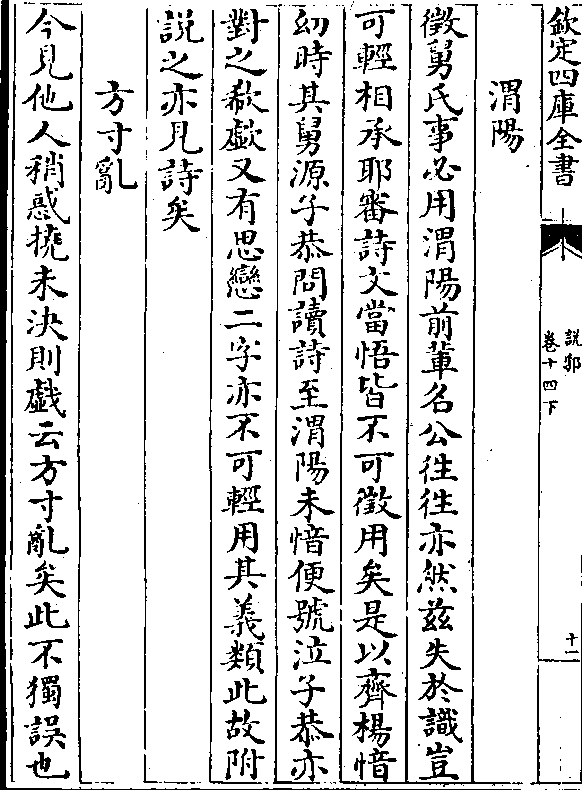 欽定四庫全書
説郛
卷十四下
十一
渭陽
徵舅氏事必用渭陽前輩名公徃徃亦然兹失於識豈
可輕相承耶審詩文當悟皆不可徵用矣是以齊楊愔
幼時其舅源子恭問讀詩至渭陽未愔便號泣子恭亦
對之欷歔又有思戀二字亦不可輕用其義類此故附
説之亦見詩矣
方寸亂
今見他人稍惑撓未決則戲云方寸亂矣此不獨誤也